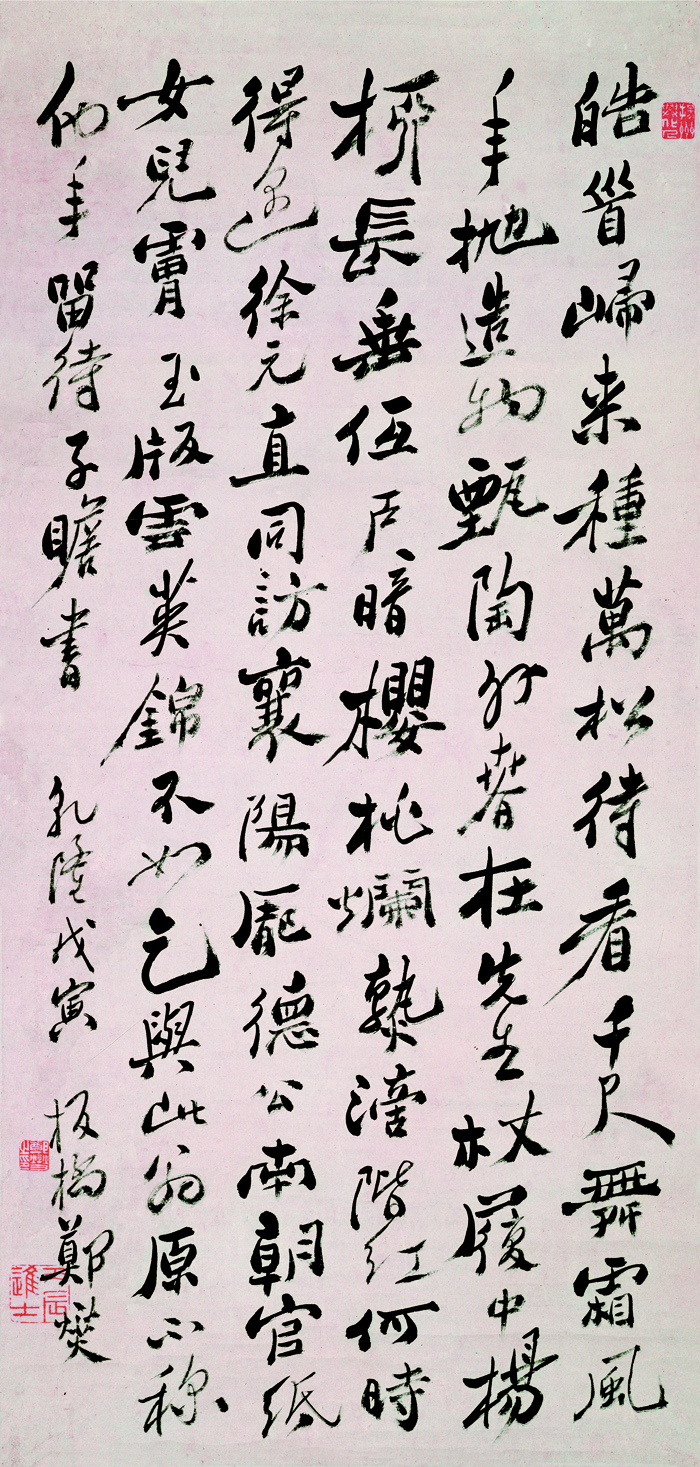 皓首歸来種萬松待看千尺舞霜風
年抛造物甄陶外春在先生杖屨中楊
柳長垂低戶暗櫻桃爛熟滴階紅何時
得徐元直同訪襄陽龐德公南朝官紙
女兒膚玉版雲英錦不如乞與此翁原不称
他年留待子瞻書
乾隆戊寅 板橋鄭燮
丙辰進士